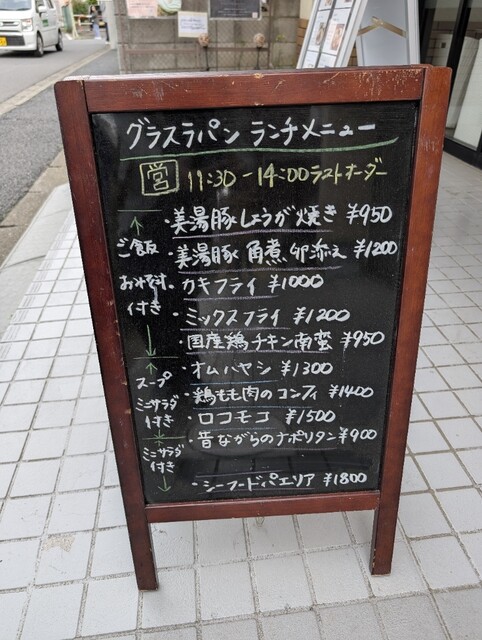 グラスラパン ランチメニュー
営 11:30-14:00ラストオーダー
・美湯豚しょうが焼き ¥950
・美湯豚 角煮 卵添え ¥1200
・カキフライ ¥1000
・ミックスフライ ¥1200
・国産鶏チキン南蛮 ¥950
ご飯
おみそ汁
付き
・オムハヤシ ¥1300
・鶏もも肉のコンフィ ¥1400
・ロコモコ ¥1500
スープ
ミニサラダ
付き
・昔ながらのナポリタン ¥900
・シーフードパエリア ¥1800
ミニサラダ
付き